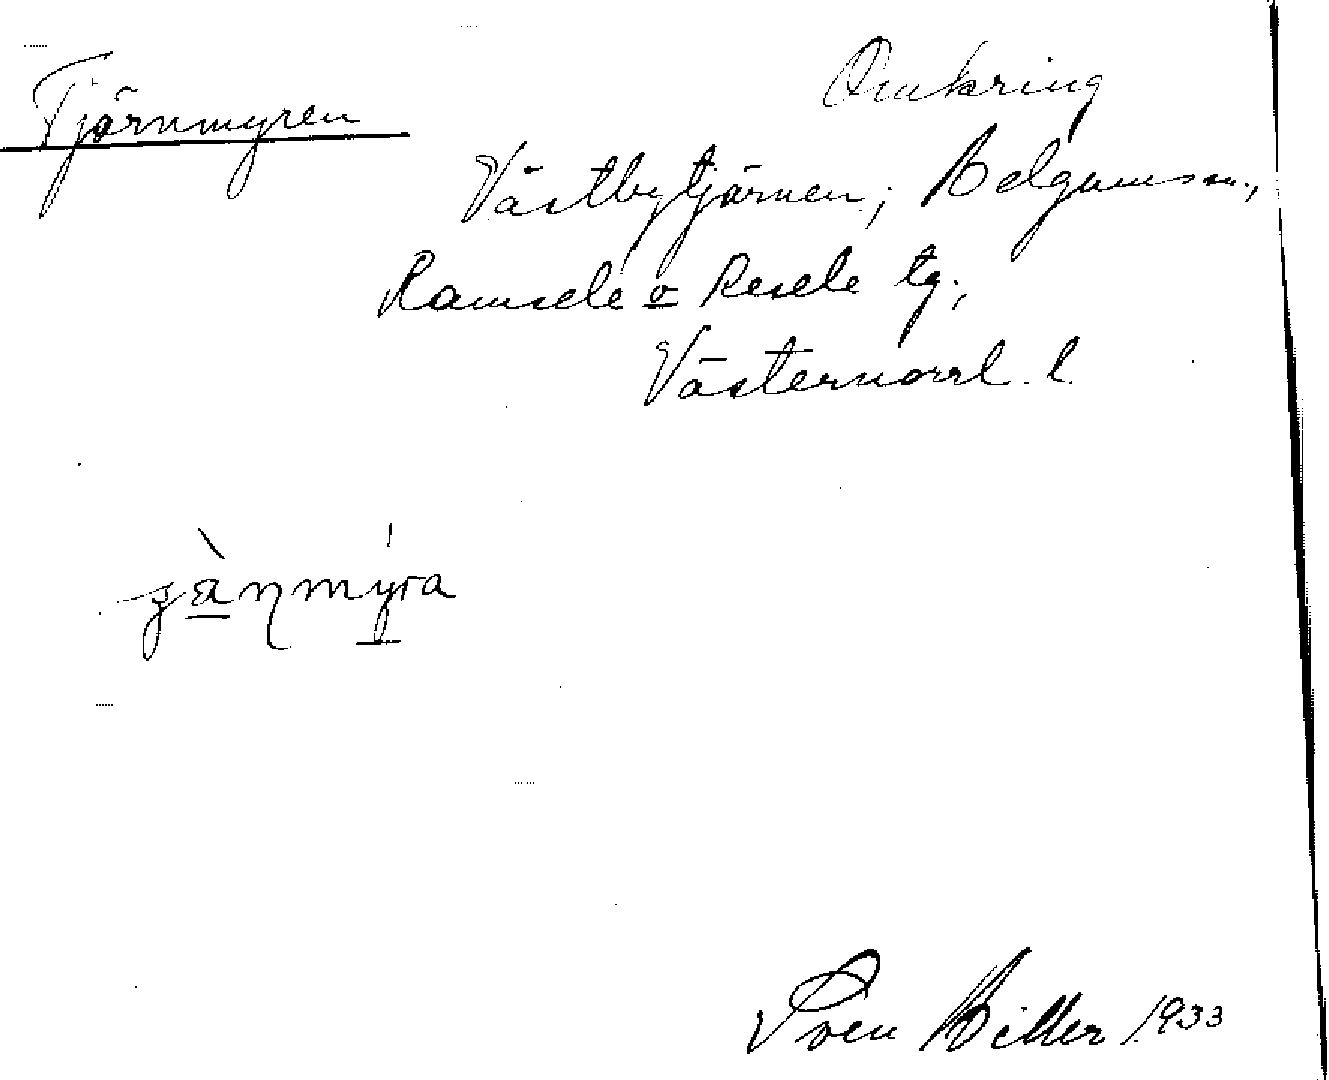 Tjärnmyren
Omkring
Västbytjärnen; Helgumsn.,
Ramsele o Resele tg.,
Västernorrl. l.
Sven Hiller 1933